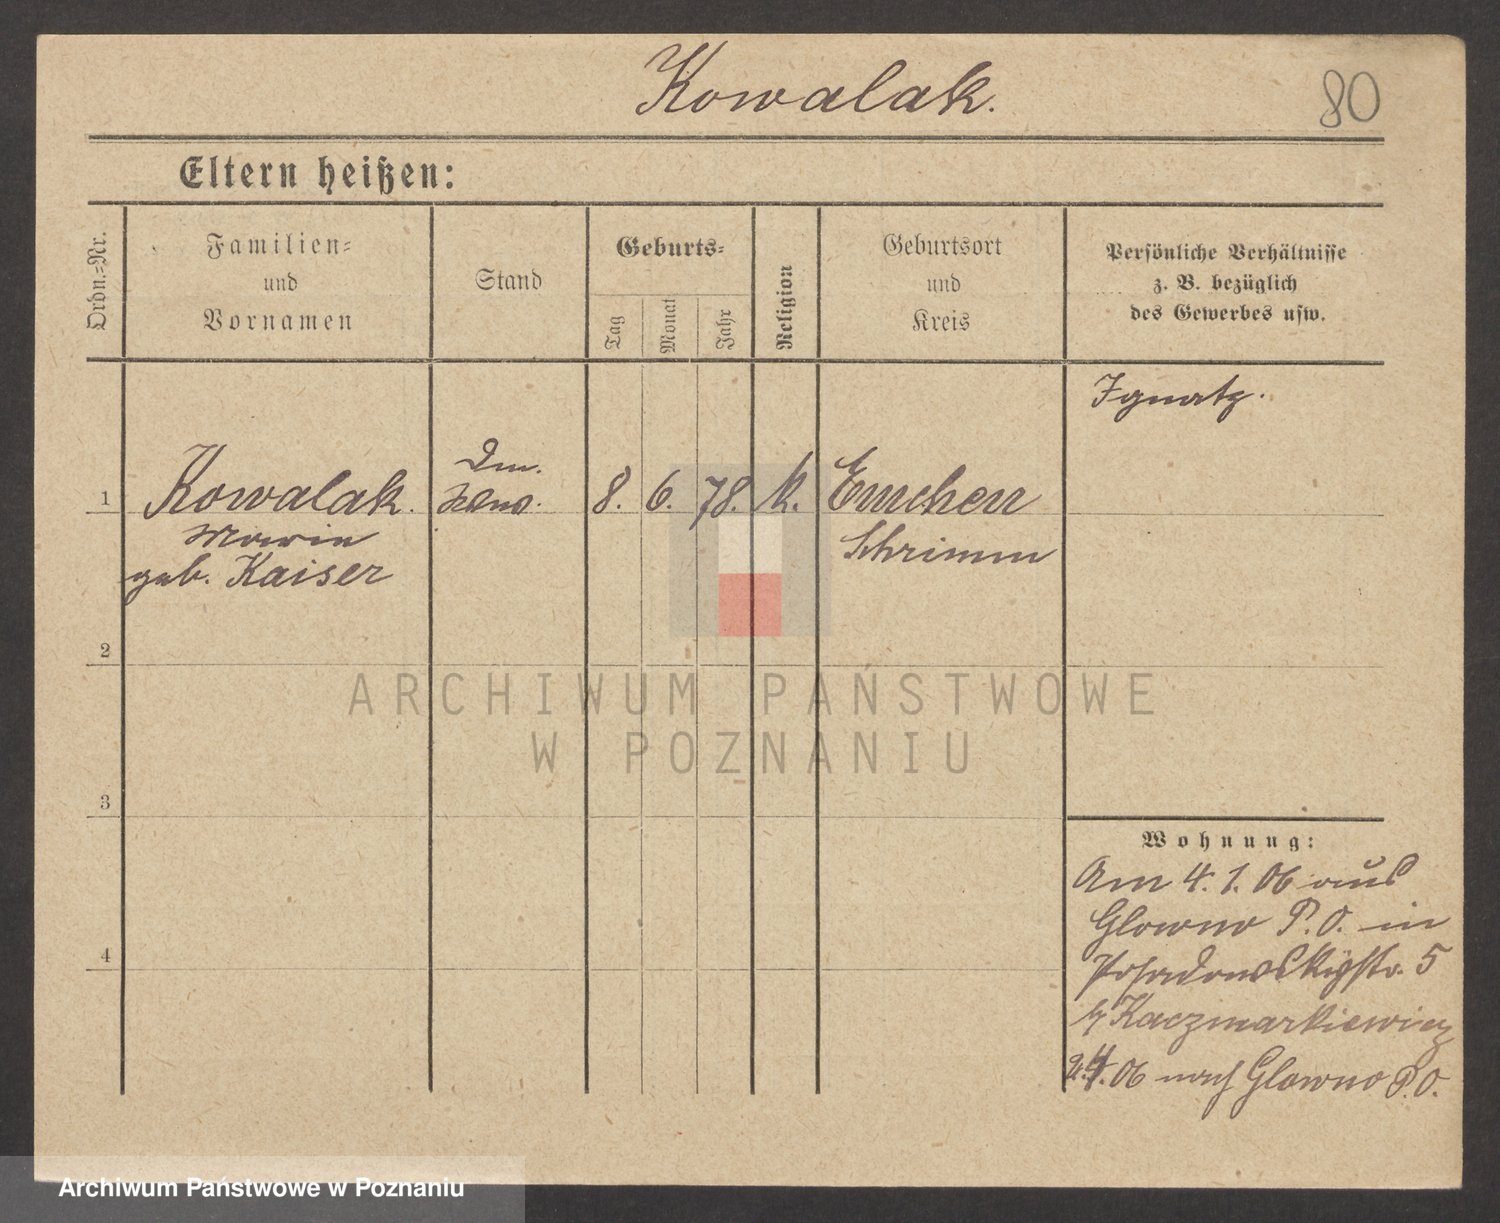 Kowalak.
80
Eltern heißen:
Ordn.=Nr.
Familien=
und
Vornamen
Stand
Geburts=
Tag
Monat
Jahr
Religion
Geburtsort
und
Kreis
Persönliche Verhältnisse
z. B. bezüglich
des Gewerbes usw.
Ignatz.
1
Kowalak.
Marie
geb. Kaiser
8.
6.
78.
k.
Emchen
Schrimm
2
3
4
Wohnung:
Am 4. 1. 06 aus
Glowno P.O. in
Posadowskystr. 5
b/ Kaczmarkiewicz
4. 06 nach Glowno P.O.
ARCHIWUM PAŃSTWOWE
W POZNANIU
Archiwum Państwowe w Poznaniu